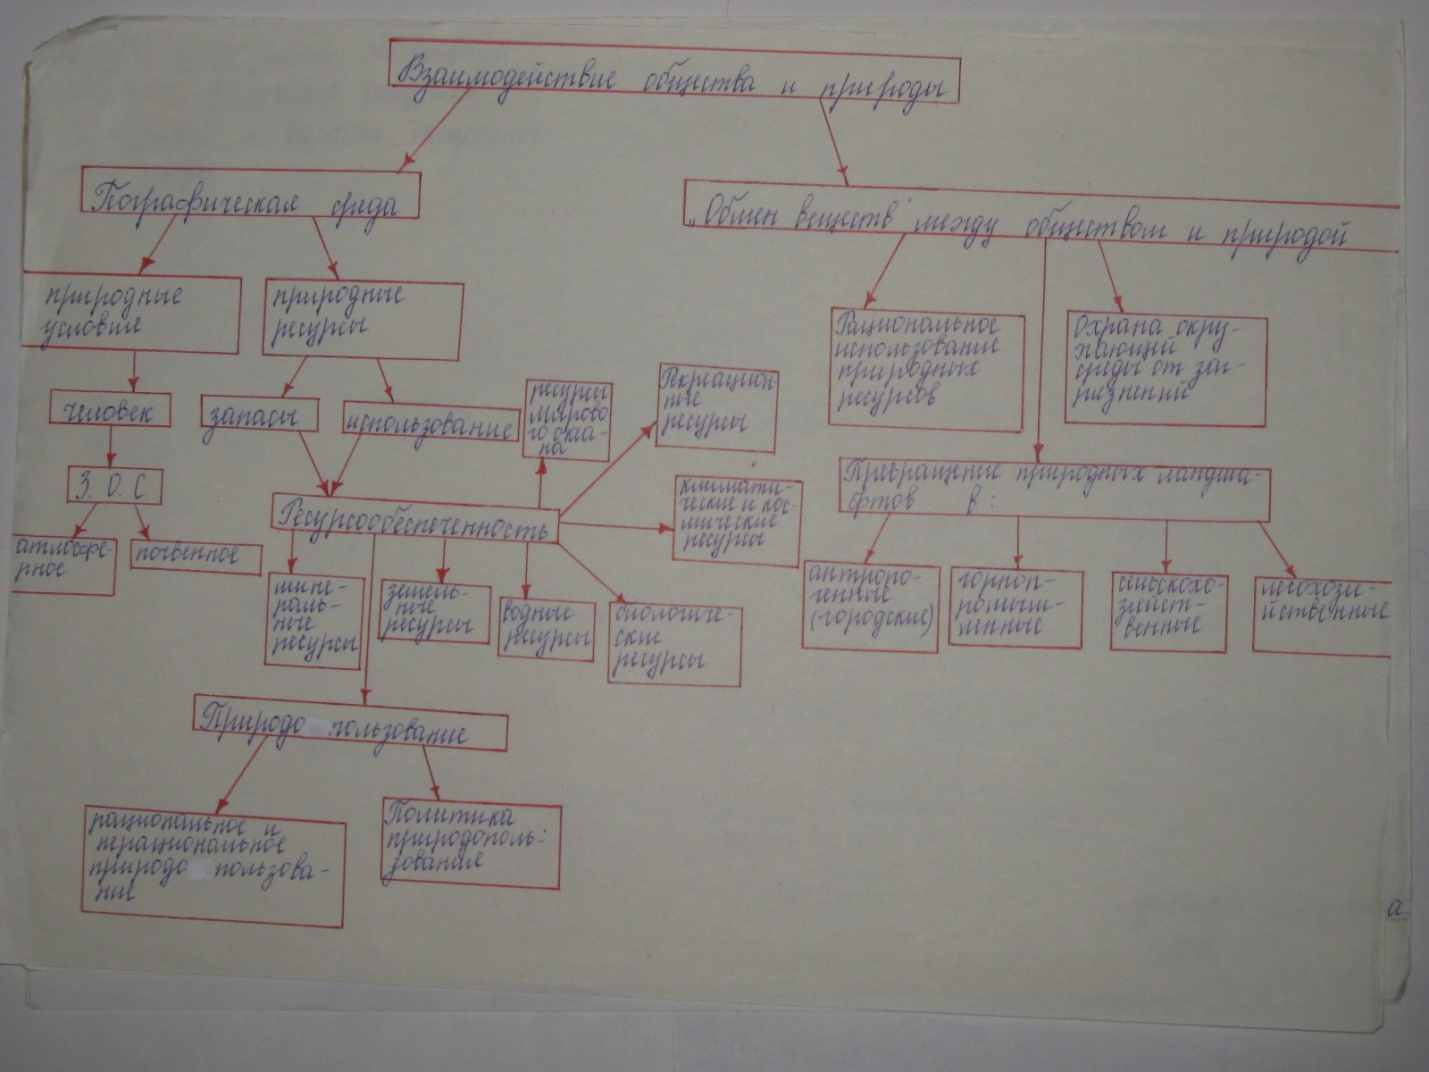 Взаимодействие общества и природы
Географическая среда
„Обмен веществ" между обществом и природой
природные
условия
природные
ресурсы
Рациональное
использование
природных
ресурсов
Охрана окру-
жающий
среды от заг-
рязнений
человек
запасы
использование
ресурсы
Мирово
го океа-
на
Рекреацион
ные
ресурсы
З. О. С
Ресурсообеспеченность
климати-
ческие и кос-
мические
ресурсы
Превращение природных ландша-
фтов в:
атмосфе-
рное
почвенное
мине-
раль-
ные
ресурсы
земель-
ные
ресурсы
водные
ресурсы
биологиче-
ские
ресурсы
антропо-
генные
(городские)
горноп-
ромыш-
ленные
сельскохо-
зяйст-
венные
лесохозя-
йственные
Природо пользование
рациональное и
нерациональное
природо пользова-
ние
Политика
природополь-
зования
а